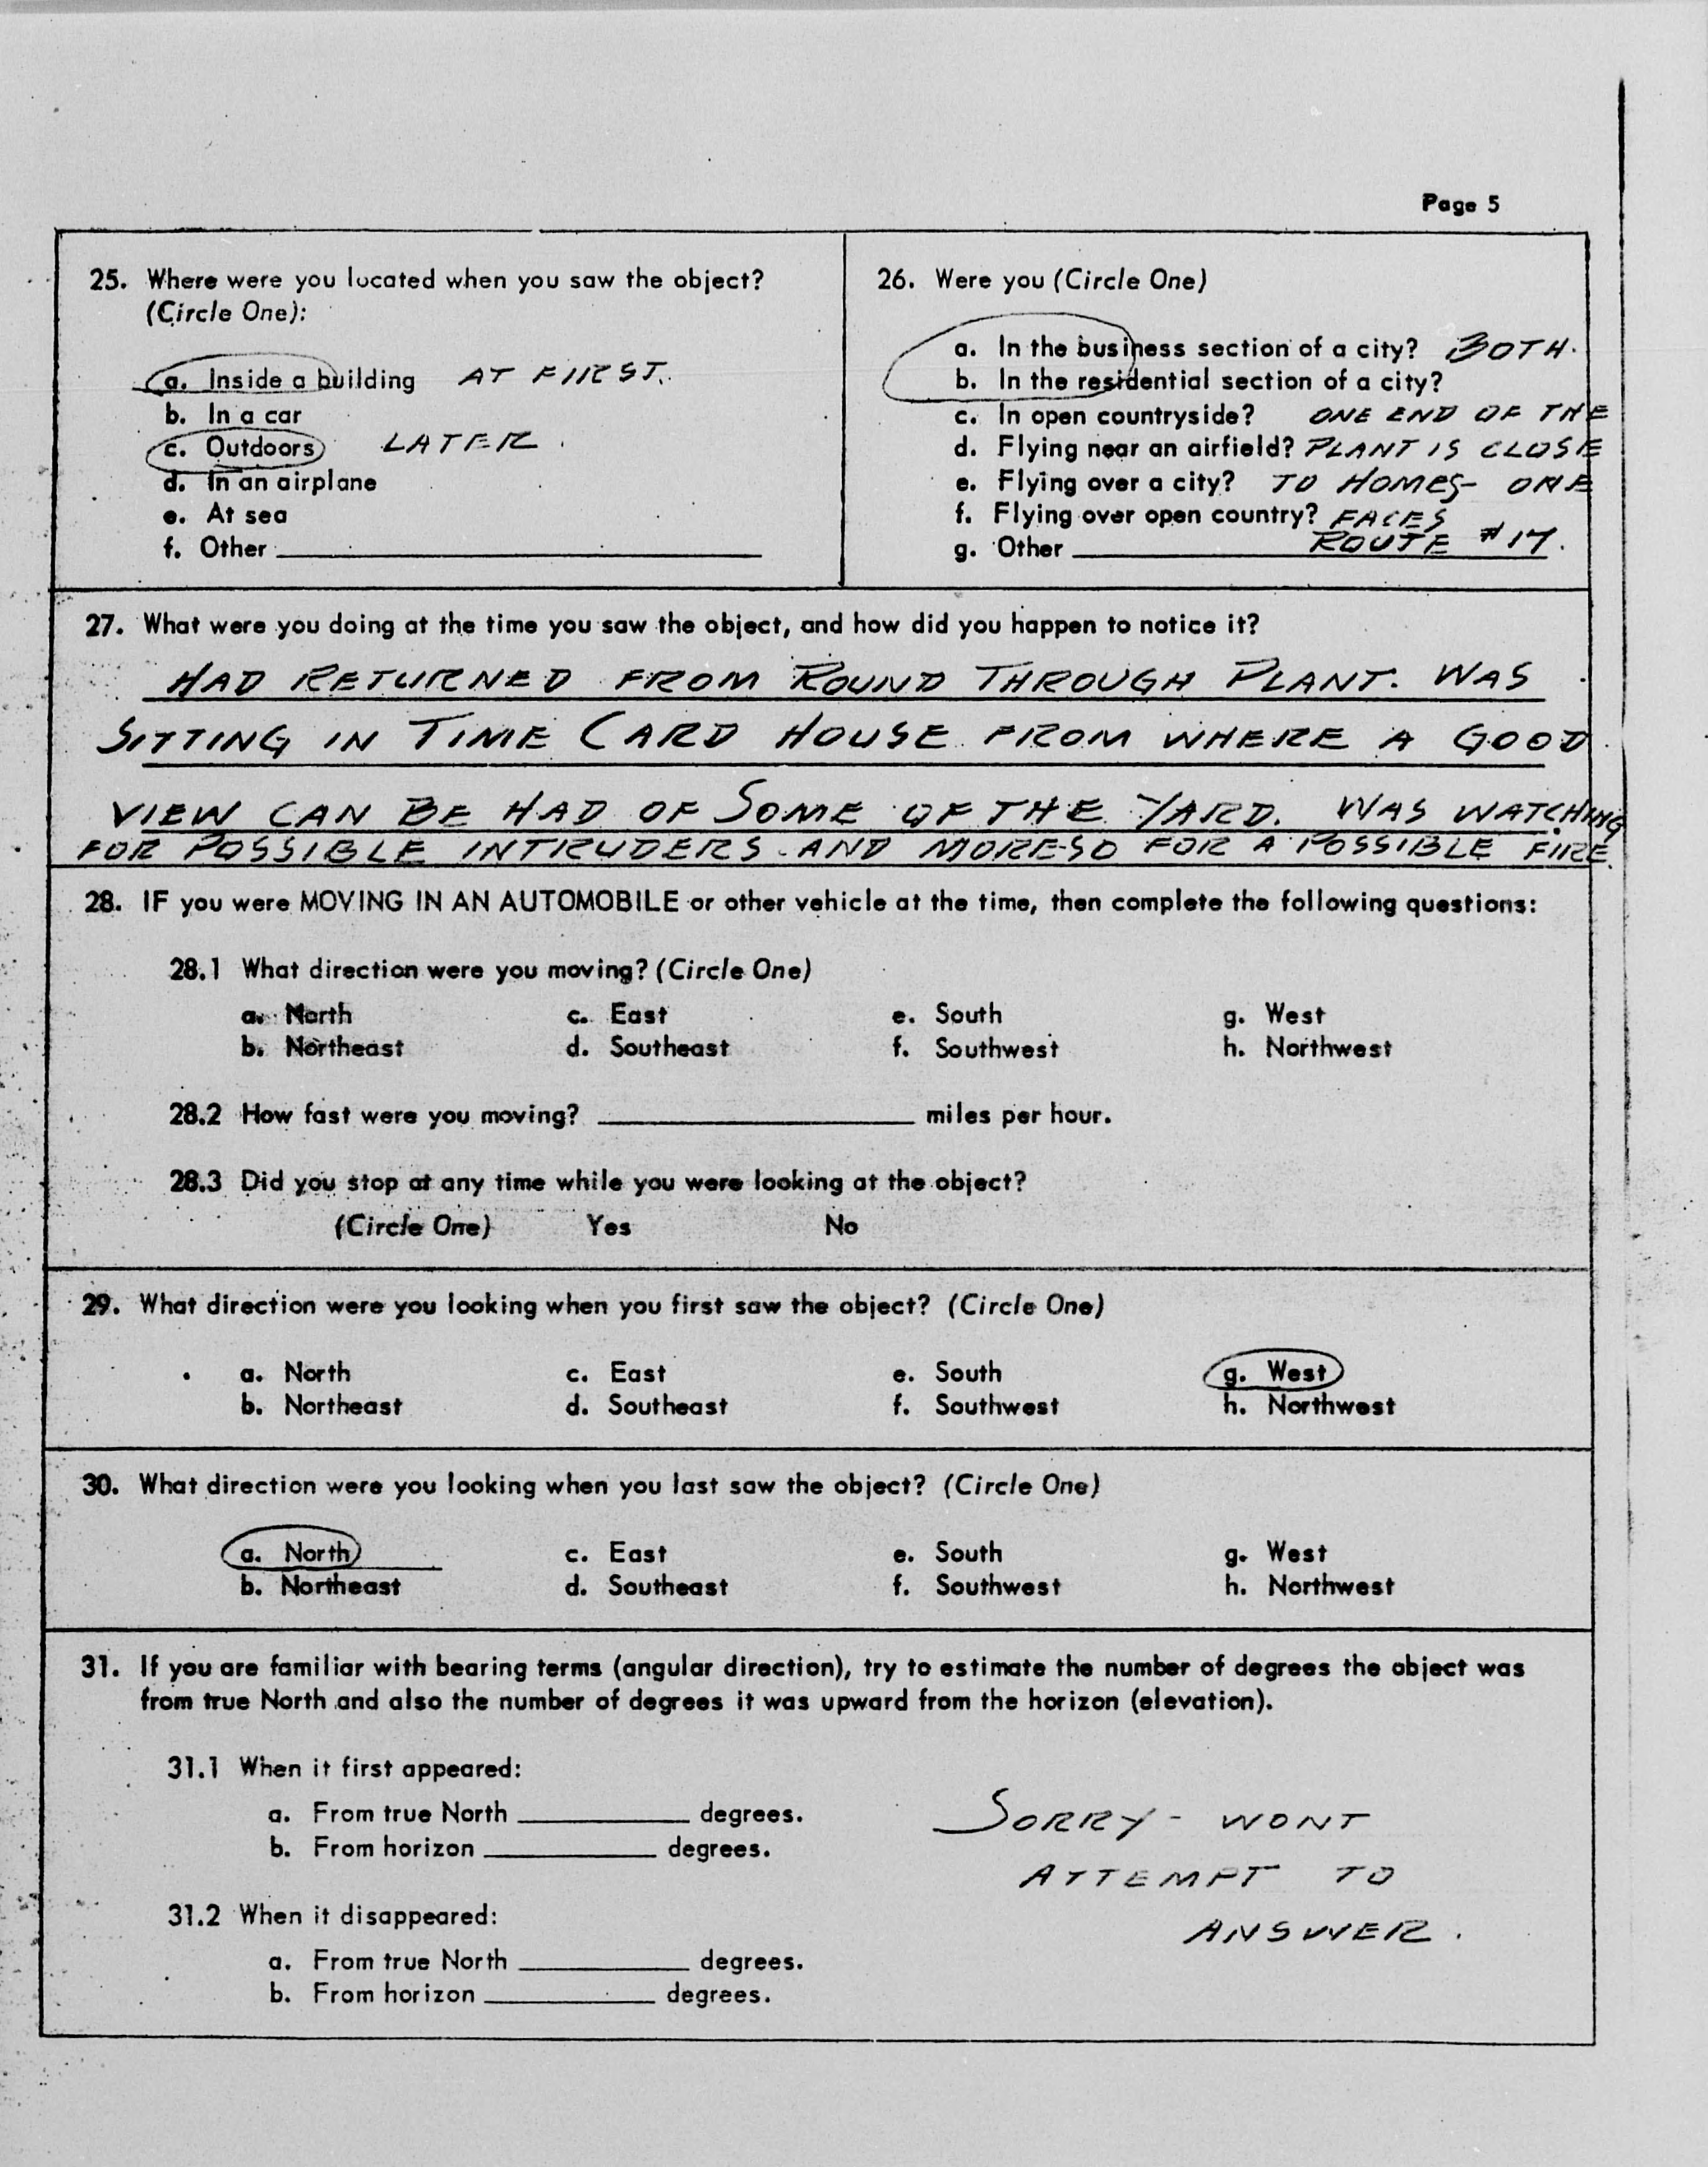 Page 5
25. Where were you located when you saw the object?
(Circle One):
a. Inside a building AT FIRST.
b. In a car
c. Outdoors LATER.
d. In an airplane
e. At sea
f. Other
26. Were you (Circle One)
a. In the business section of a city? BOTH.
b. In the residential section of a city?
c. In open countryside? ONE END OF THE
d. Flying near an airfield? PLANT IS CLOSE
e. Flying over a city? TO HOMES- ONE
f. Flying over open country? FACES
g. Other ROUTE #17.
27. What were you doing at the time you saw the object, and how did you happen to notice it?
HAD RETURNED FROM ROUND THROUGH PLANT. WAS
SITTING IN TIME CARD HOUSE FROM WHERE A GOOD
VIEW CAN BE HAD OF SOME OF THE YARD. WAS WATCHING
FOR POSSIBLE INTRUDERS AND MORE-SO FOR A POSSIBLE FIRE.
28. IF you were MOVING IN AN AUTOMOBILE or other vehicle at the time, then complete the following questions:
28.1 What direction were you moving? (Circle One)
a. North c. East e. South g. West
b. Northeast d. Southeast f. Southwest h. Northwest
28.2 How fast were you moving? miles per hour.
28.3 Did you stop at any time while you were looking at the object?
(Circle One) Yes No
29. What direction were you looking when you first saw the object? (Circle One)
a. North c. East e. South g. West
b. Northeast d. Southeast f. Southwest h. Northwest
30. What direction were you looking when you last saw the object? (Circle One)
a. North c. East e. South g. West
b. Northeast d. Southeast f. Southwest h. Northwest
31. If you are familiar with bearing terms (angular direction), try to estimate the number of degrees the object was
from true North and also the number of degrees it was upward from the horizon (elevation).
31.1 When it first appeared:
a. From true North degrees.
b. From horizon degrees.
31.2 When it disappeared:
a. From true North degrees.
b. From horizon degrees.
SORRY - WONT
ATTEMPT TO
ANSWER.